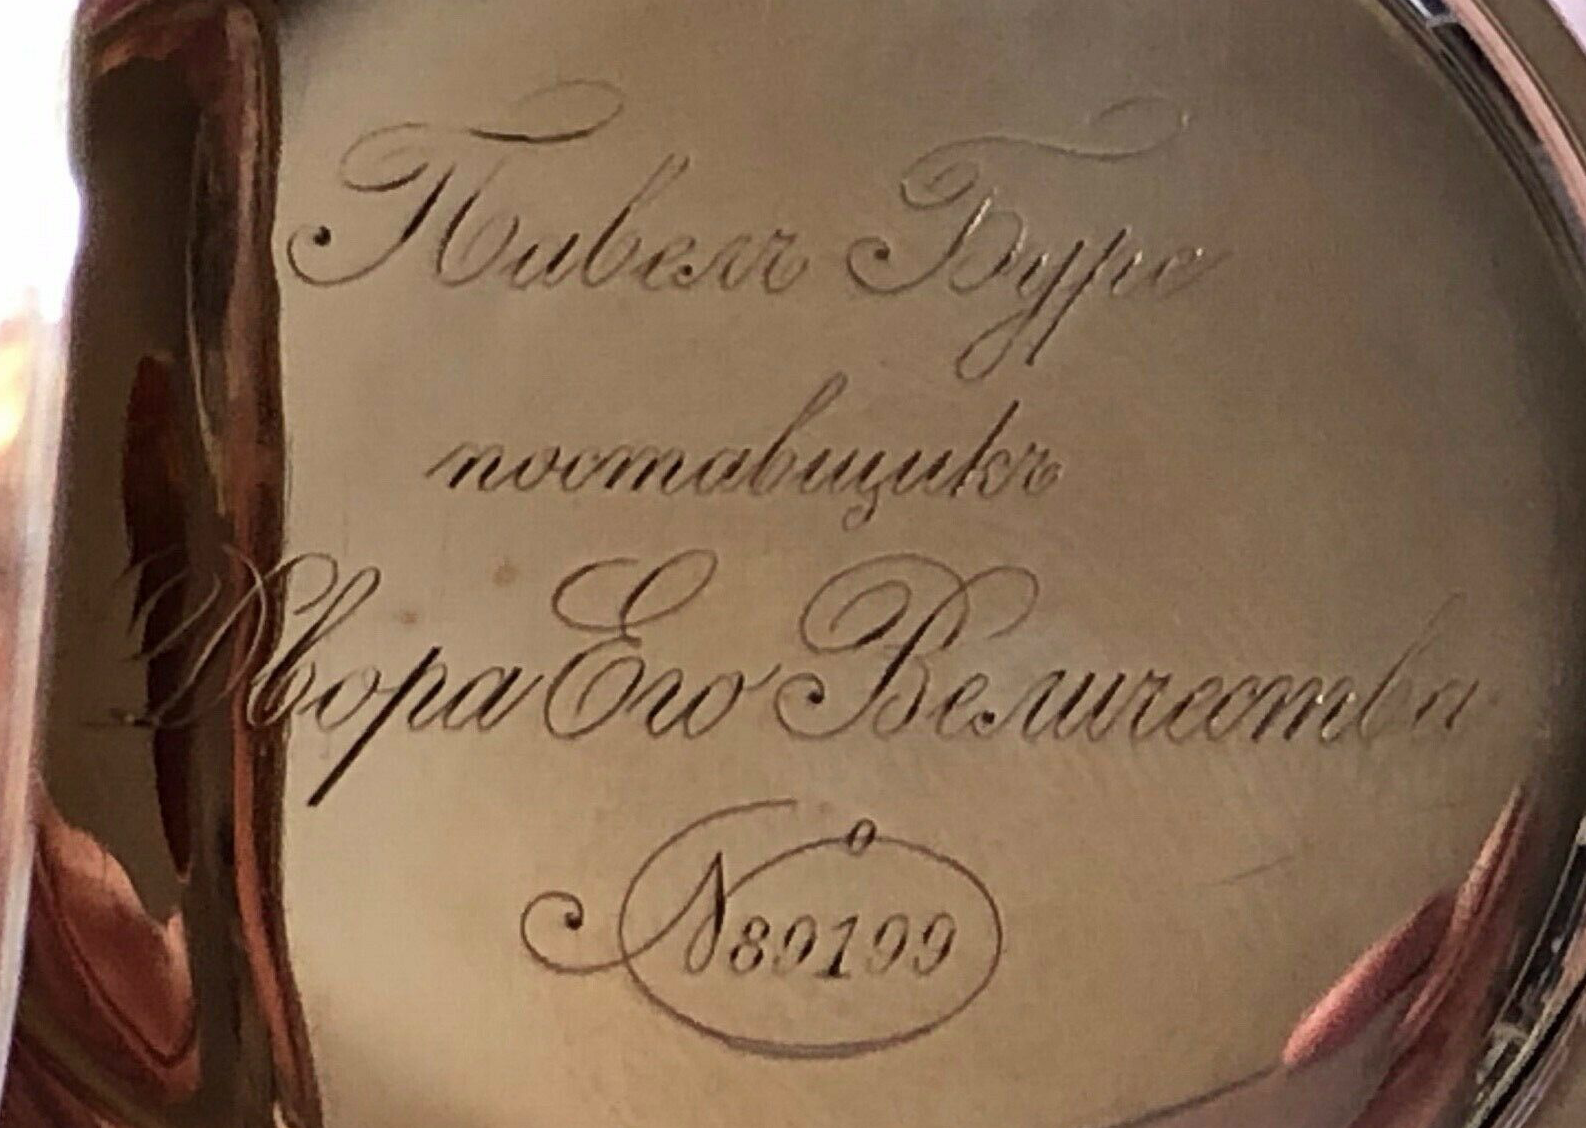 Павелъ Буре
поставщикъ
Двора Его Величества
№ 89199